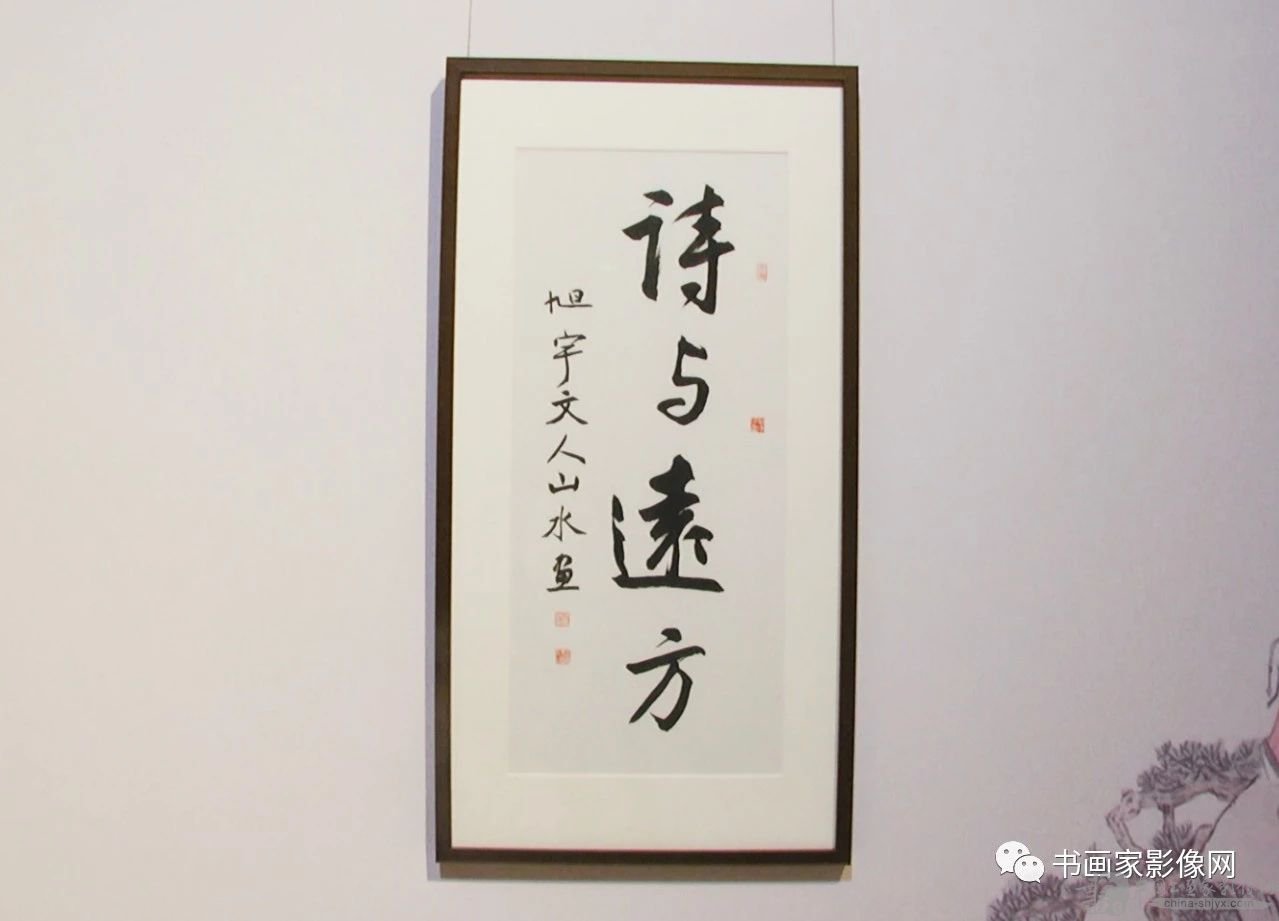 诗与遠方
旭宇文人山水画
书画家影像网
china-shjyx.com